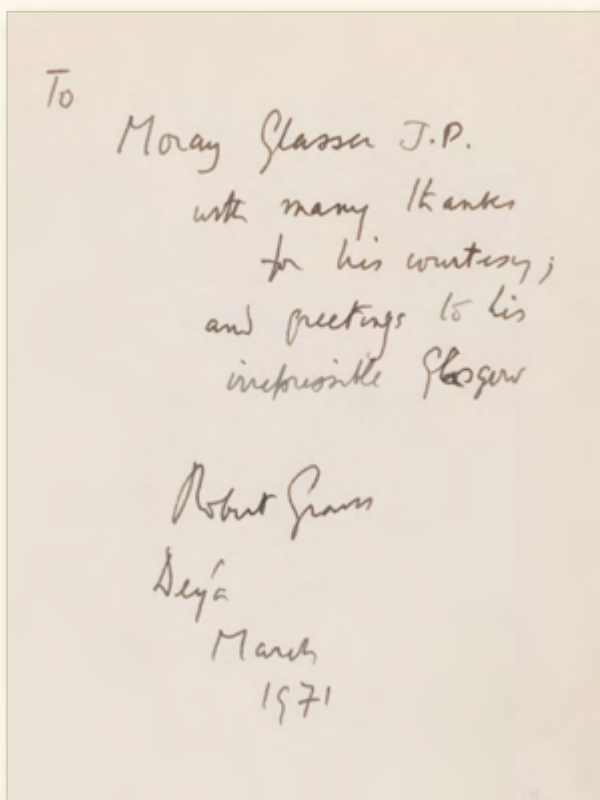 To
Moray Glasser J.P.
with many thanks
for his courtesy;
and greetings to his
irrepressible Glasgow
Robert Graves
Deyá
March
1971